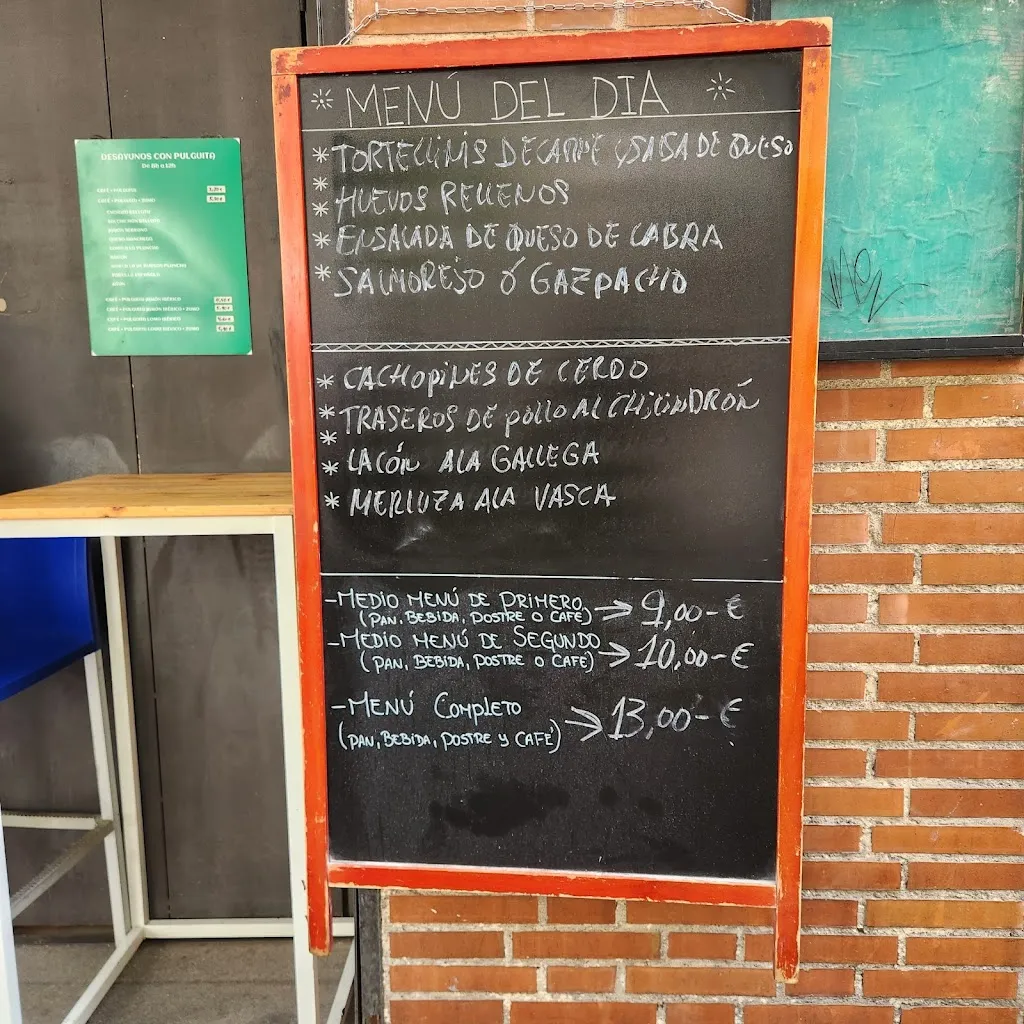 MENÚ DEL DIA
* TORTELLINIS DE CARNE Y SALSA DE QUESO
*
* HUEVOS RELLENOS
* ENSALADA DE QUESO DE CABRA
* SALMOREJO Ó GAZPACHO
* CACHOPINES DE CERDO
* TRASEROS DE POLLO AL CHILINDRÓN
*
* LACÓN A LA GALLEGA
* MERLUZA A LA VASCA
-MEDIO MENÚ DE PRIMERO → 9,00-€
(PAN, BEBIDA, POSTRE O CAFÉ)
-MEDIO MENÚ DE SEGUNDO → 10,00-€
(PAN, BEBIDA, POSTRE O CAFÉ)
-MENÚ COMPLETO → 13,00-€
(PAN, BEBIDA, POSTRE Y CAFÉ)
DESAYUNOS CON PULGUITA
De 8h a 12h
CAFÉ + PULGUITA
CAFÉ + PULGUITA + ZUMO